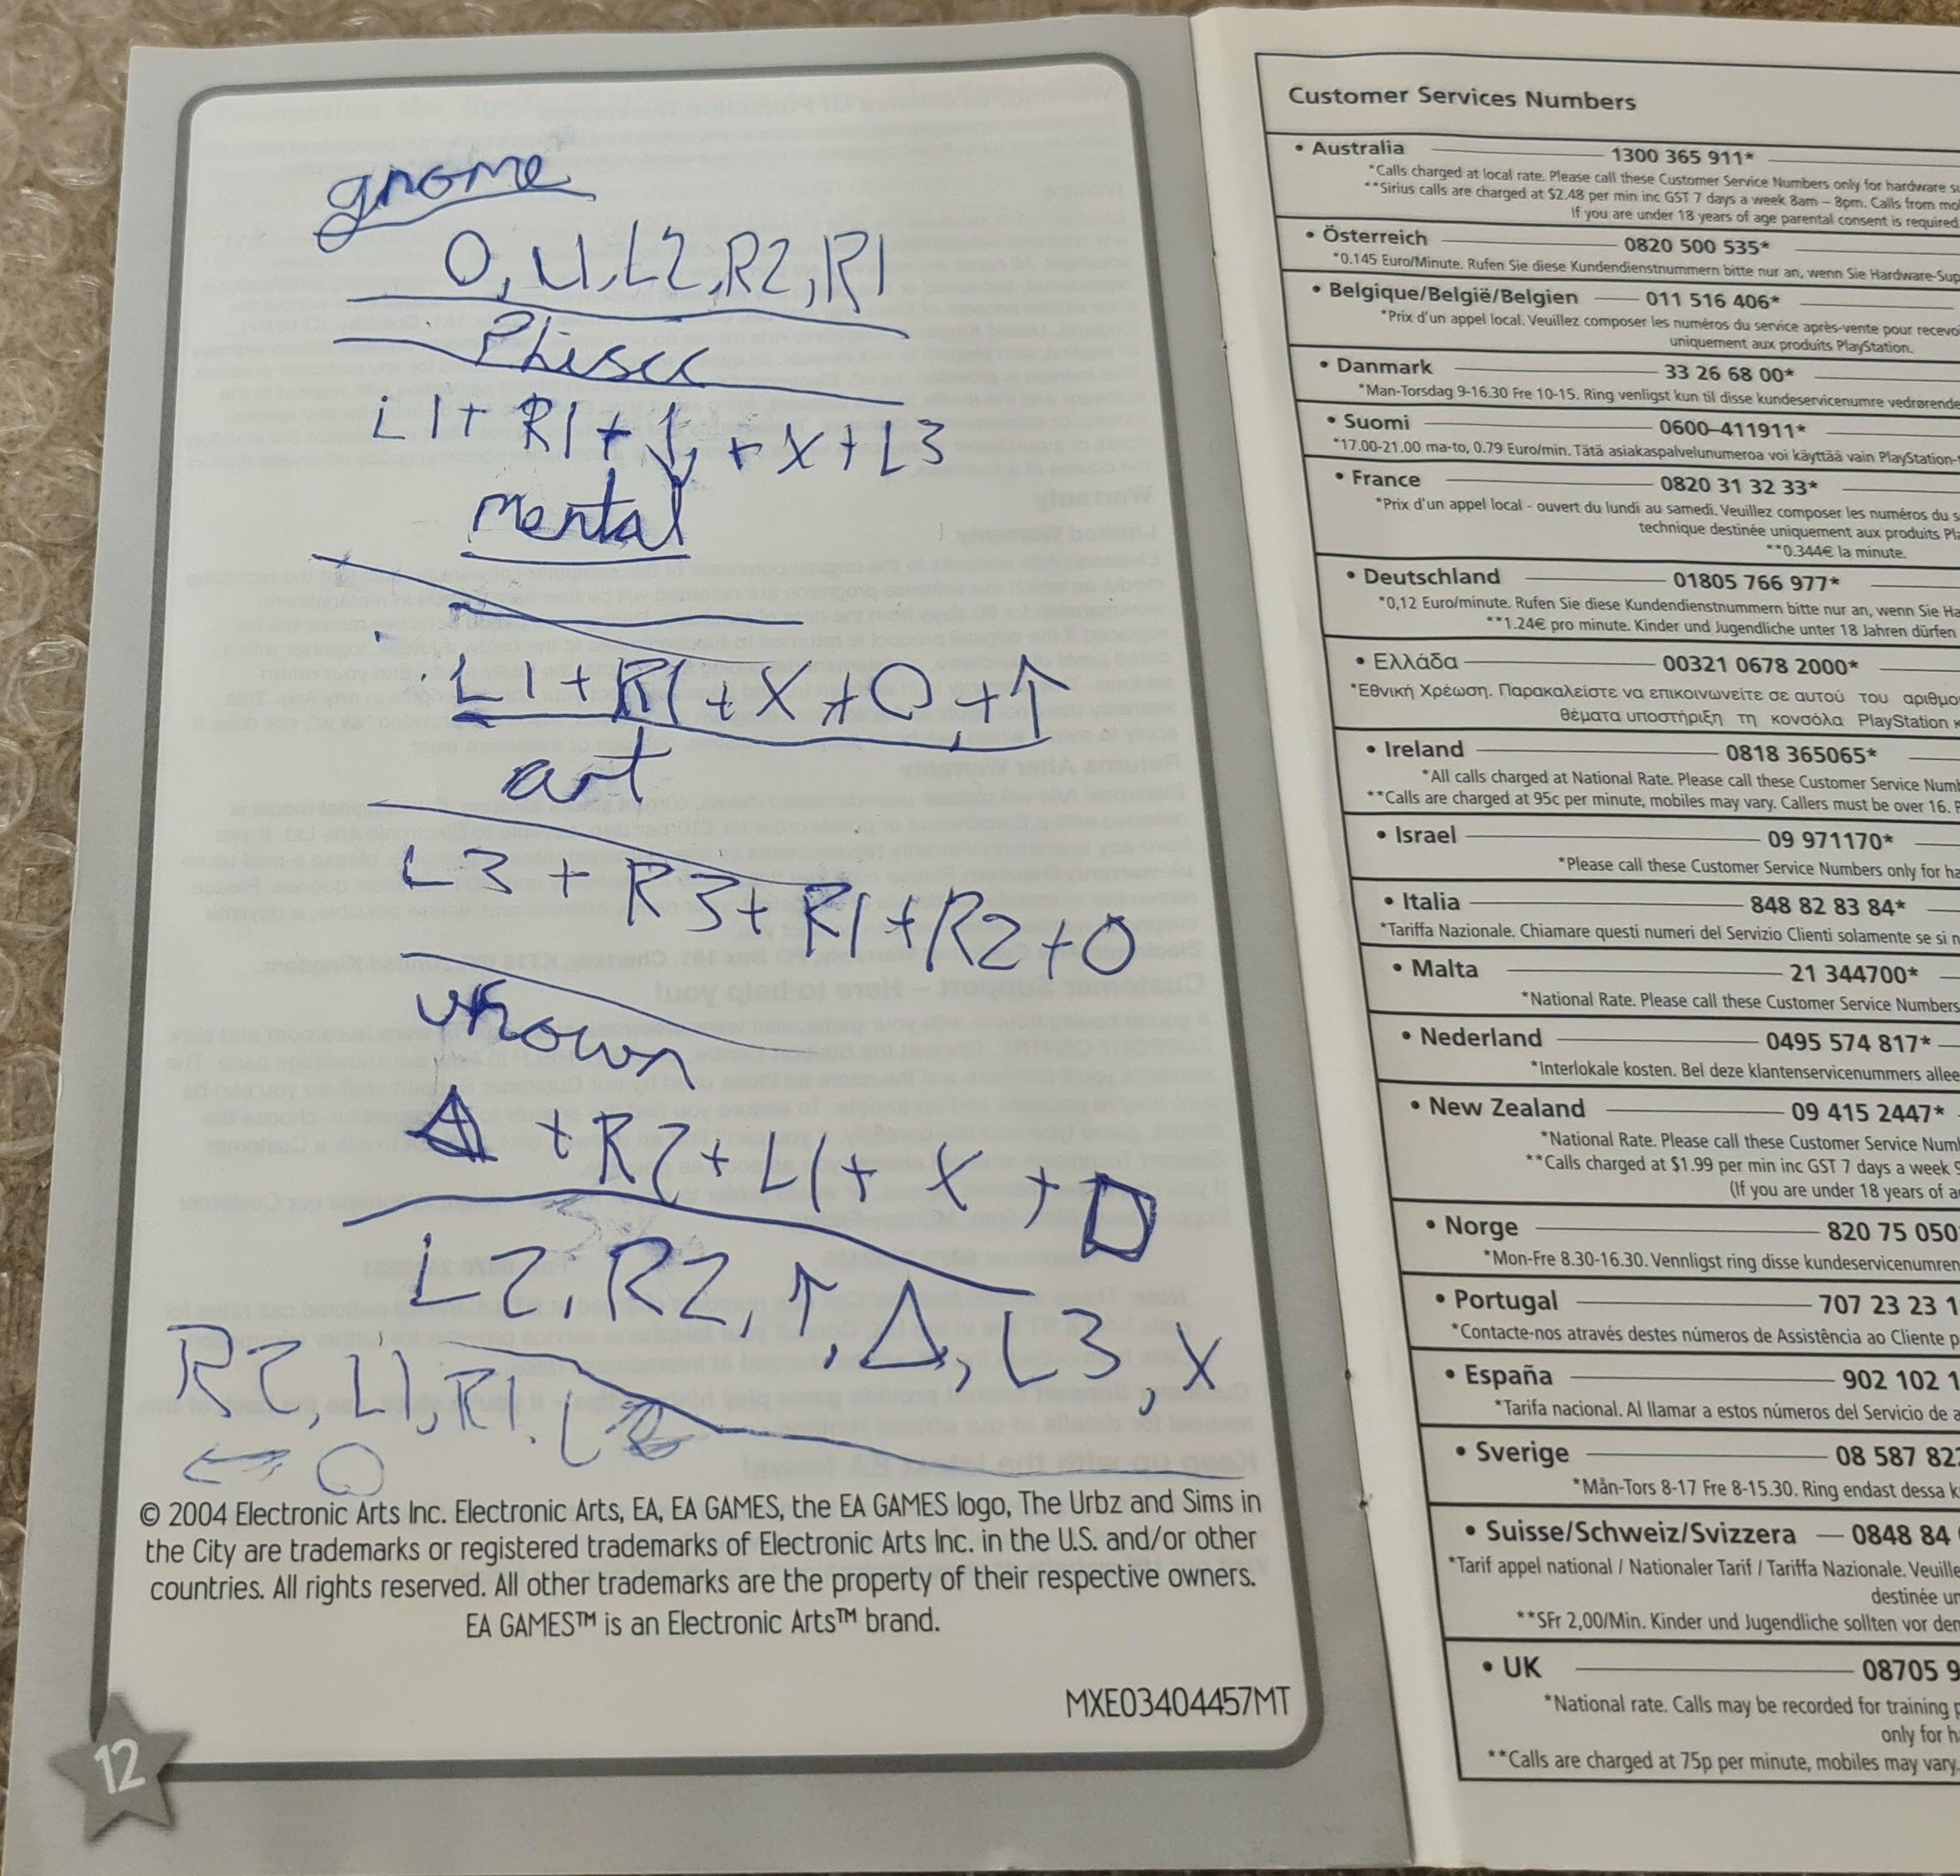 gnome
O, L1, L2, R2, R1
Phiscc
L1 + R1 + ↓ + X + L3
mental
L1 + R1 + X + O + ↑
art
L3 + R3 + R1 + R2 + O
unown
△ + R2 + L1 + X + □
L2, R2, ↑, △, L3, X
R2, L1, R1,
← O
© 2004 Electronic Arts Inc. Electronic Arts, EA, EA GAMES, the EA GAMES logo, The Urbz and Sims in
the City are trademarks or registered trademarks of Electronic Arts Inc. in the U.S. and/or other
countries. All rights reserved. All other trademarks are the property of their respective owners.
EA GAMES™ is an Electronic Arts™ brand.
MXE03404457MT
12
Customer Services Numbers
• Australia 1300 365 911*
*Calls charged at local rate. Please call these Customer Service Numbers only for hardware
**Sirius calls are charged at $2.48 per min inc GST 7 days a week 8am – 8pm. Calls from
If you are under 18 years of age parental consent is required.
• Österreich 0820 500 535*
*0.145 Euro/Minute. Rufen Sie diese Kundendienstnummern bitte nur an, wenn Sie Hardware-
• Belgique/België/Belgien 011 516 406*
*Prix d'un appel local. Veuillez composer les numéros du service après-vente pour
uniquement aux produits PlayStation.
• Danmark 33 26 68 00*
*Man-Torsdag 9-16.30 Fre 10-15. Ring venligst kun til disse kundeservicenumre
• Suomi 0600–411911*
*17.00-21.00 ma-to, 0.79 Euro/min. Tätä asiakaspalvelunumeroa voi käyttää vain PlayStation-
• France 0820 31 32 33*
*Prix d'un appel local - ouvert du lundi au samedi. Veuillez composer les numéros du
technique destinée uniquement aux produits
**0.344€ la minute.
• Deutschland 01805 766 977*
*0,12 Euro/minute. Rufen Sie diese Kundendienstnummern bitte nur an, wenn Sie
**1.24€ pro minute. Kinder und Jugendliche unter 18 Jahren dürfen
• Ελλάδα 00321 0678 2000*
*Εθνική Χρέωση. Παρακαλείστε να επικοινωνείτε σε αυτού του
θέματα υποστήριξη τη κονσόλα PlayStation
• Ireland 0818 365065*
*All calls charged at National Rate. Please call these Customer Service
**Calls are charged at 95c per minute, mobiles may vary. Callers must be over 16.
• Israel 09 971170*
*Please call these Customer Service Numbers only for
• Italia 848 82 83 84*
*Tariffa Nazionale. Chiamare questi numeri del Servizio Clienti solamente se si
• Malta 21 344700*
*National Rate. Please call these Customer Service Numbers
• Nederland 0495 574 817*
*Interlokale kosten. Bel deze klantenservicenummers
• New Zealand 09 415 2447*
*National Rate. Please call these Customer Service
**Calls charged at $1.99 per min inc GST 7 days a week
(If you are under 18 years of
• Norge 820 75 050
*Mon-Fre 8.30-16.30. Vennligst ring disse
• Portugal 707 23 23 1
*Contacte-nos através destes números de Assistência ao Cliente
• España 902 102 1
*Tarifa nacional. Al llamar a estos números del Servicio de
• Sverige 08 587
*Mån-Tors 8-17 Fre 8-15.30. Ring endast dessa
• Suisse/Schweiz/Svizzera 0848 84
*Tarif appel national / Nationaler Tarif / Tariffa Nazionale.
destinée
**SFr 2,00/Min. Kinder und Jugendliche sollten vor
• UK 08705 9
*National rate. Calls may be recorded for training
only for
**Calls are charged at 75p per minute, mobiles may vary.